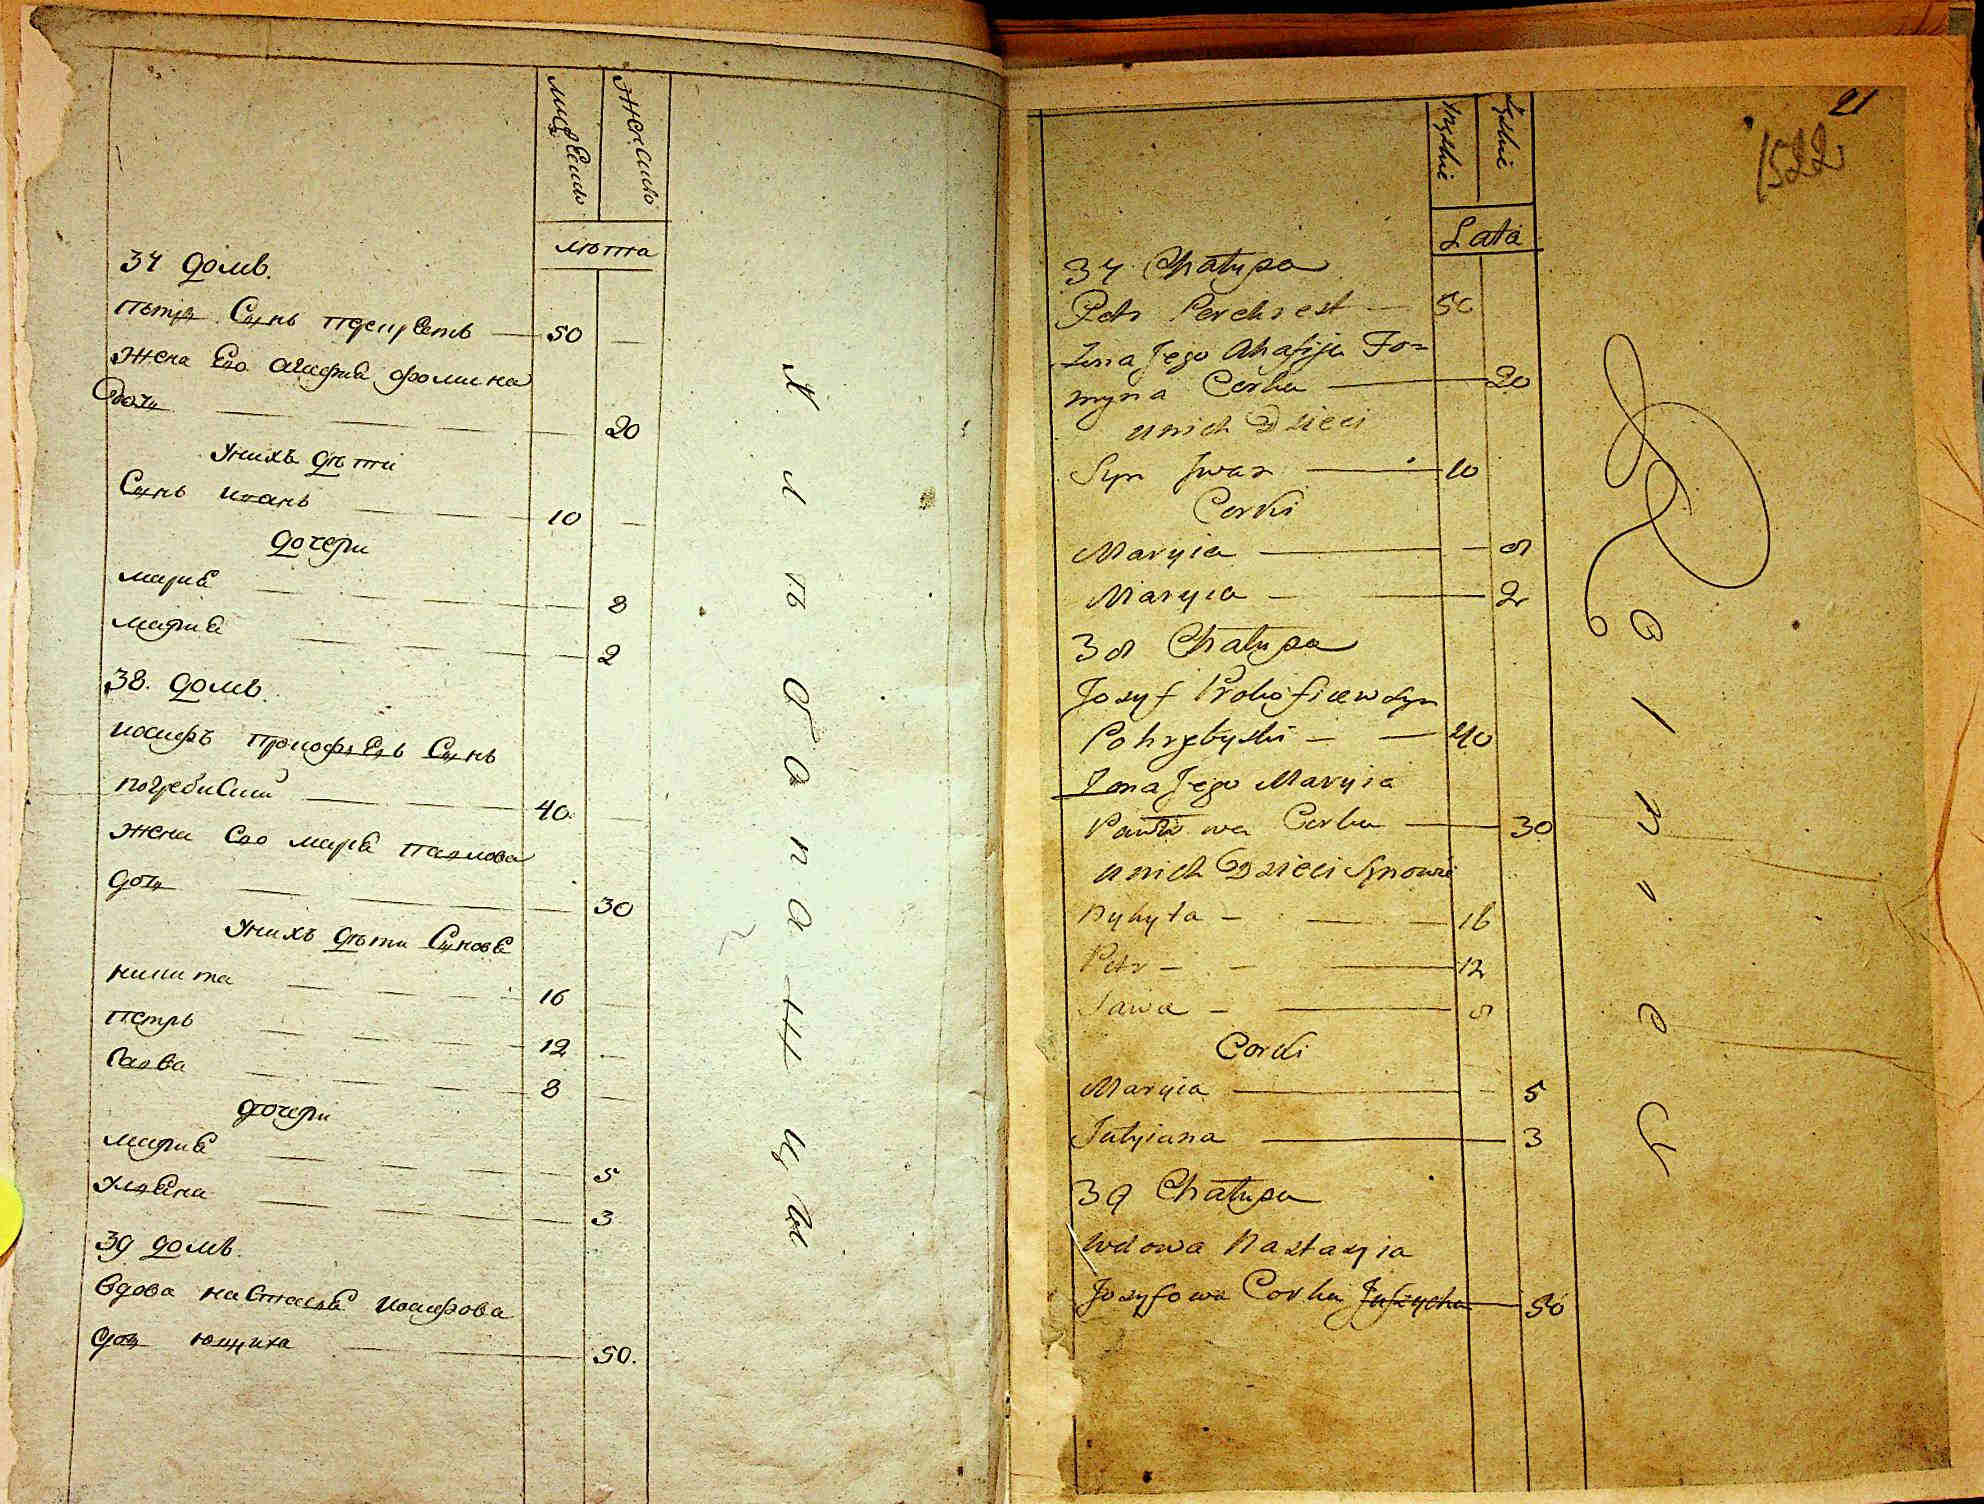 мужескъ
женскъ
лѣта
37 домъ.
Петръ Сынъ перехрестъ — 50 —
жена Его агафиа фомина
дочь — 20
Унихъ дѣти
Сынъ иванъ — 10 —
дочери
мариа — 8
мариа — 2
38. домъ.
иосифъ прокофьевъ Сынъ
погребиский — 40. —
жена Его мариа павлова
дочь — 30
Унихъ дѣти Сынове
никита — 16 —
петръ — 12 —
савва — 8 —
дочери
мариа — 5
Улиана — 3
39 домъ.
вдова настасиа иосифова
дочь ющиха — 50.
Х л ѣ б а п а н и ц ы
21
1522
męskie
żeńskie
Lata
37 Chałupa
Petr Perchrest — 50
Żona Jego Ahafija Fo=
myna Corka — 20
u nich Dzieci
Syn Jwan — 10
Corki
Maryia — 8
Maryia — 2
38 Chałupa
Jozyf Prokofiiew Syn
Pohrebyski — 40
Żona Jego Maryia
Pawłowa Corka — 30
u nich Dzieci Synowie
Nykyta — 16
Petr — 12
Sawa — 8
Corki
Maryia — 5
Julyiana — 3
39 Chałupa
Wdowa Nastazyia
Jozyfowa Corka Juszczycha — 50